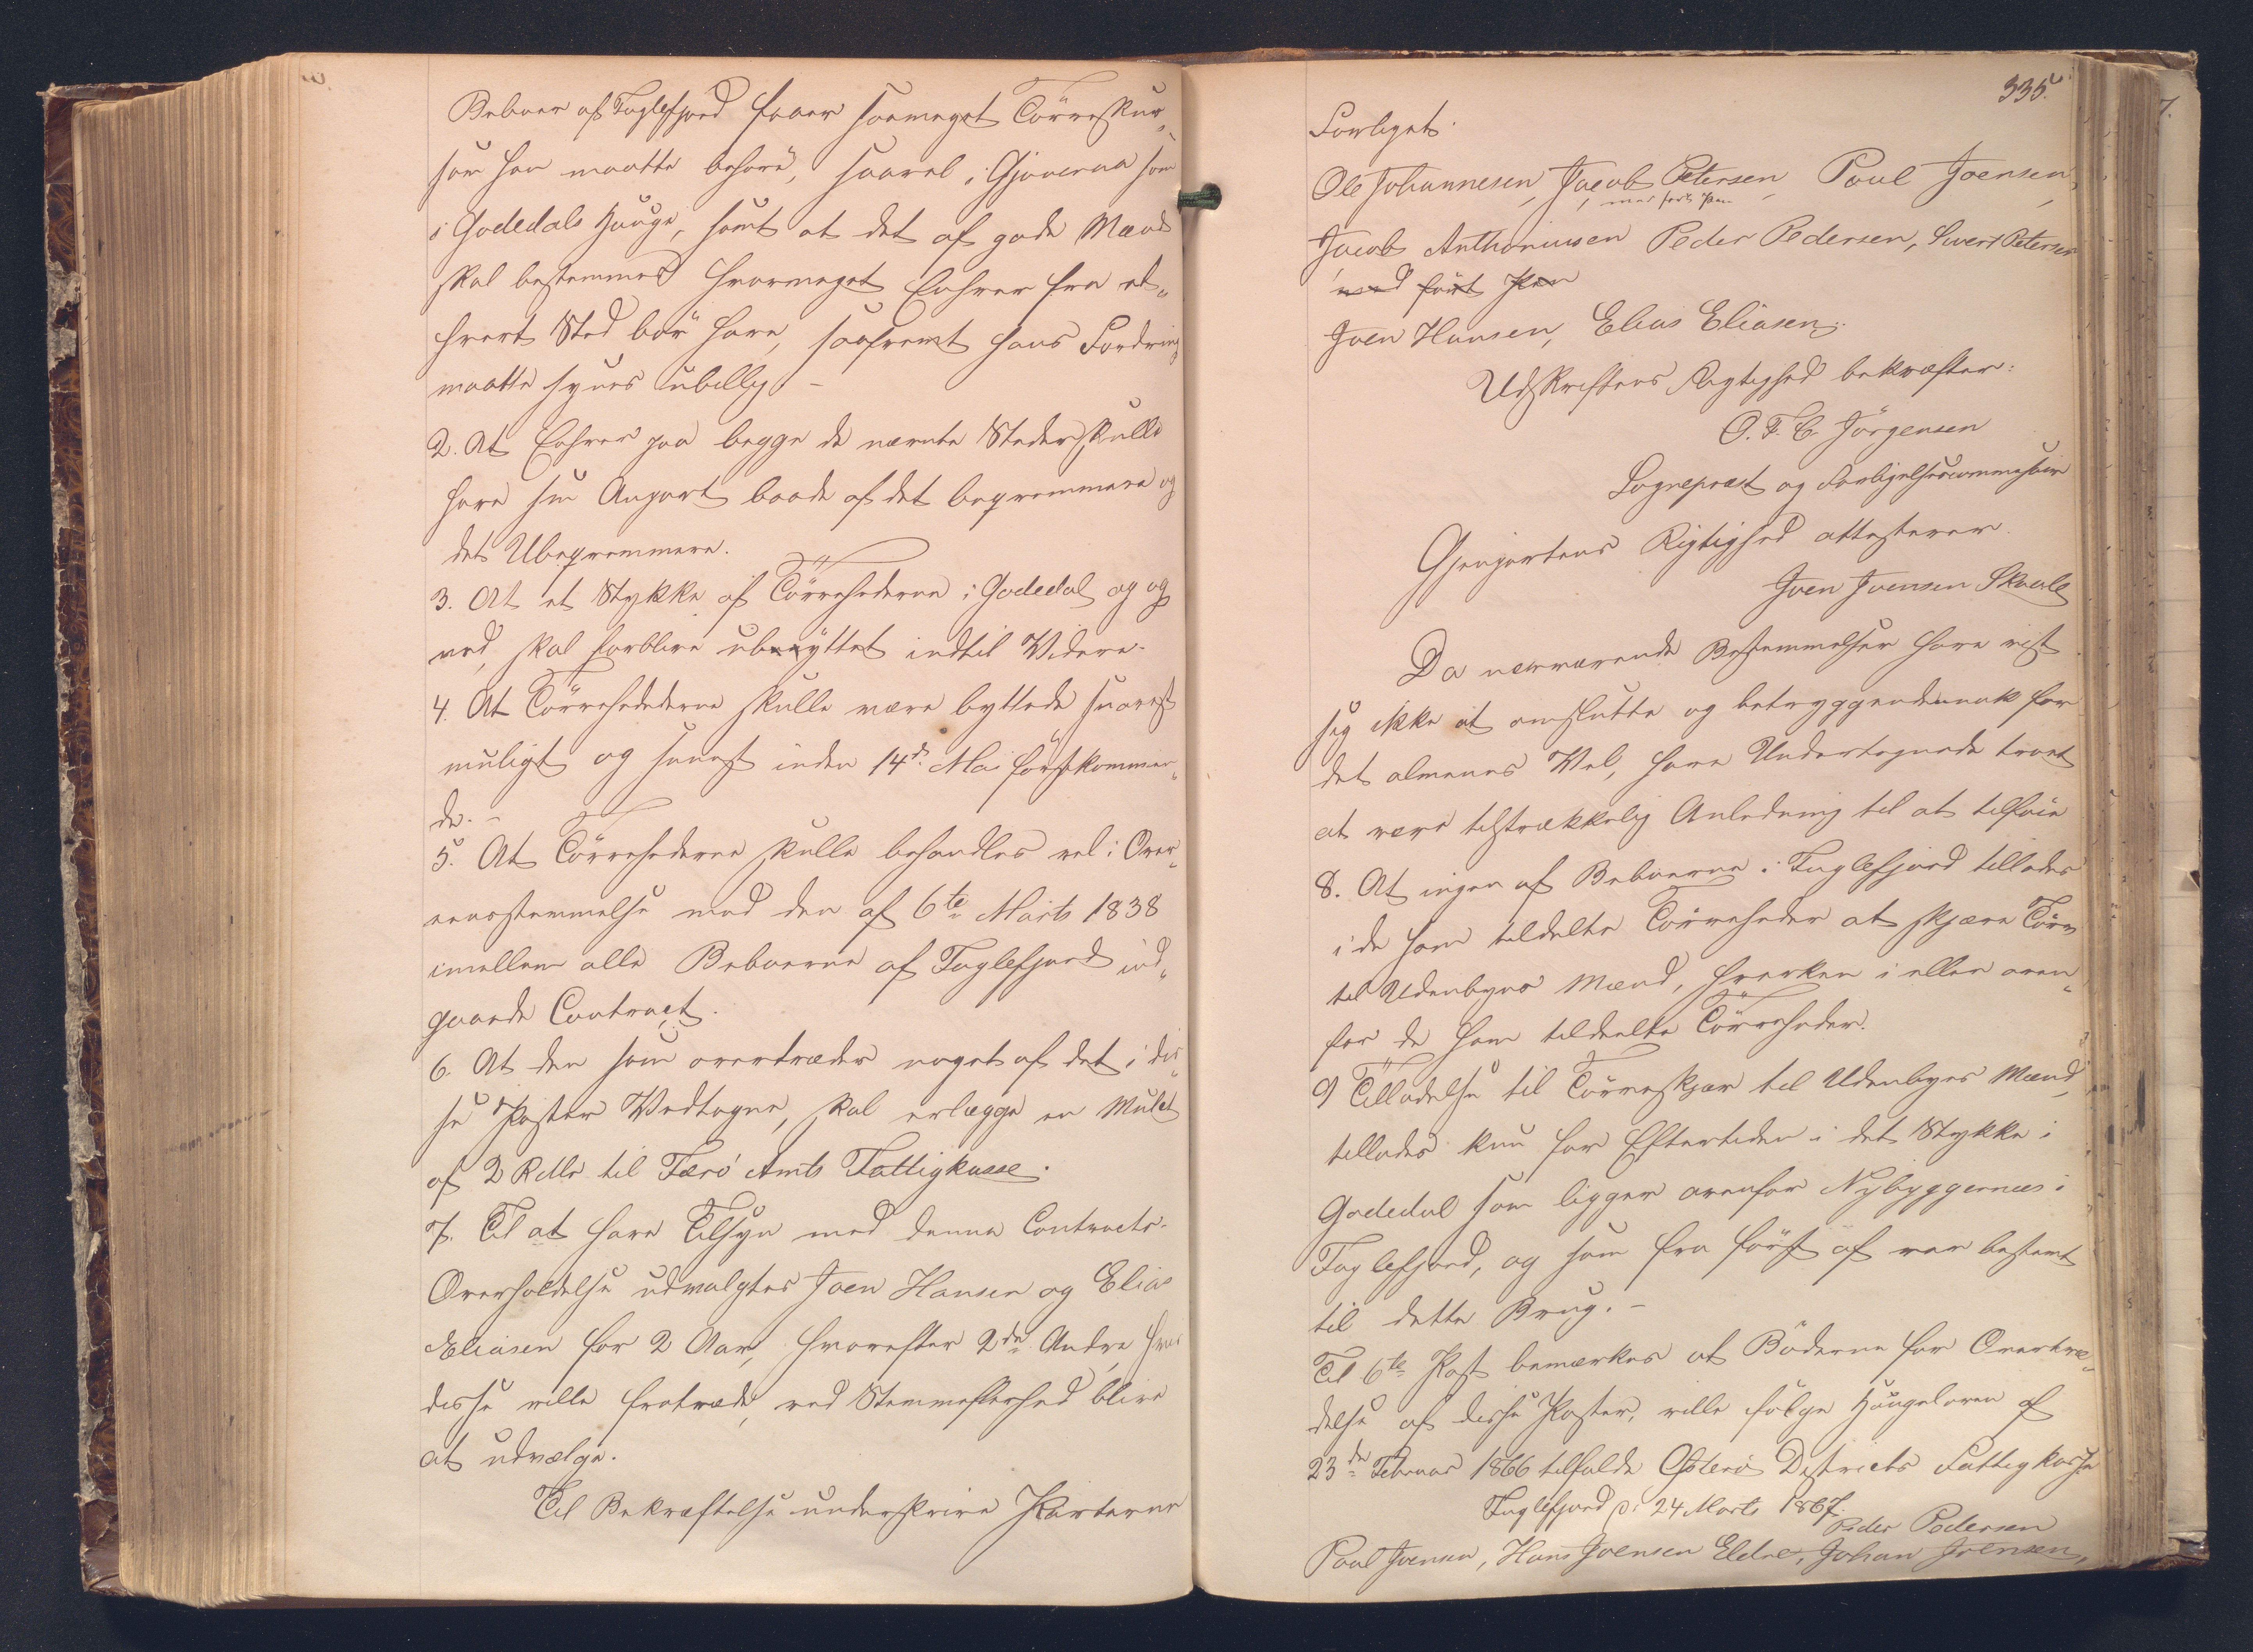 Beboer af Fuglefjord faaer saameget Törveskur„
som han maatte behöve, saavel i Gjoveraa som
i Godedals Hauge, samt at det af gode Mænd
skal bestemmes hvormeget Enhver fra et„
hvert Sted bör have, saafremt hans Fordring
maatte synes ubillig –
2. At Enhver paa begge de nævnte Steder skulle
have sin Anpart baade af det beqvemmere og
det Ubeqvemmere.
3. At et Stykke af Törvehederne i Godedal og og
ved, skal forblive ubenyttet indtil Videre.
4. At Törvehederne skulle være byttede snarest
muligt og senest inden 14d. Mai förstkommen„
de. –
5. At Törvehederne skulle behandles vel i Over„
eensstemmelse med den af 6te Marts 1838
imellem alle Beboerne af Fuglefjord ind„
gaaede Contract.
6. At den som overtræder noget af det i dis„
se Poster Vedtagne, skal erlægge en Mulct
af 2 Rdlr til Færö Amts Fattigkasse.
7. Til at have Tilsyn med denne Contracts
Overholdelse udvalgtes Joen Hansen og Elias
Eliasen for 2 Aar, hvorefter 2de Andre, hvis
disse ville fratræde, ved Stemmefleerhed blive
at udvælge.
Til Bekræftelse underskrive Parterne
335.
Forliget.
Ole Johannesen, Jacob Petersen, Poul Joensen,
med fört Pen
Jacob Anthoniusen Peder Pedersen, Sivert Petersen
med fört Pen
Joen Hansen, Elias Eliasen.
Udskriftens Rigtighed bekræfter:
O. F. C. Jörgensen
Sognepræst og Forligelsescommissair
Gjenpartens Rigtighed attesterer.
Joen Joensen Skaale
Da nærværende Bestemmelser have vist
sig ikke at omslutte og betryggende nok for
det almenes Vel, have Undertegnede troet
at være tilstrækkelig Anledning til at tilföie
8. At ingen af Beboerne i Fuglefjord tillades
i de ham tildelte Törveheder at skjære Törv
til Udenbyes Mænd, hverken i eller oven„
for de ham tildeelte Törveheder.
9 Tilladelse til Törveskjær til Udenbyes Mænd,
tillades kun for Eftertiden i det Stykke i
Godedal som ligger ovenfor Nybyggernes i
Fuglefjord, og som fra först af var bestemt
til dette Brug. –
Til 6te Post bemærkes at Böderne for Overtræ„
delse af disse Poster, ville fölge Haugeloven af
23de Februar 1866 tilfalde Österö Districts Fattigkasse
Fuglefjord d: 24 Marts 1867.
Peder Pedersen
Poul Joensen, Hans Joensen Eldre, Johan Joensen,